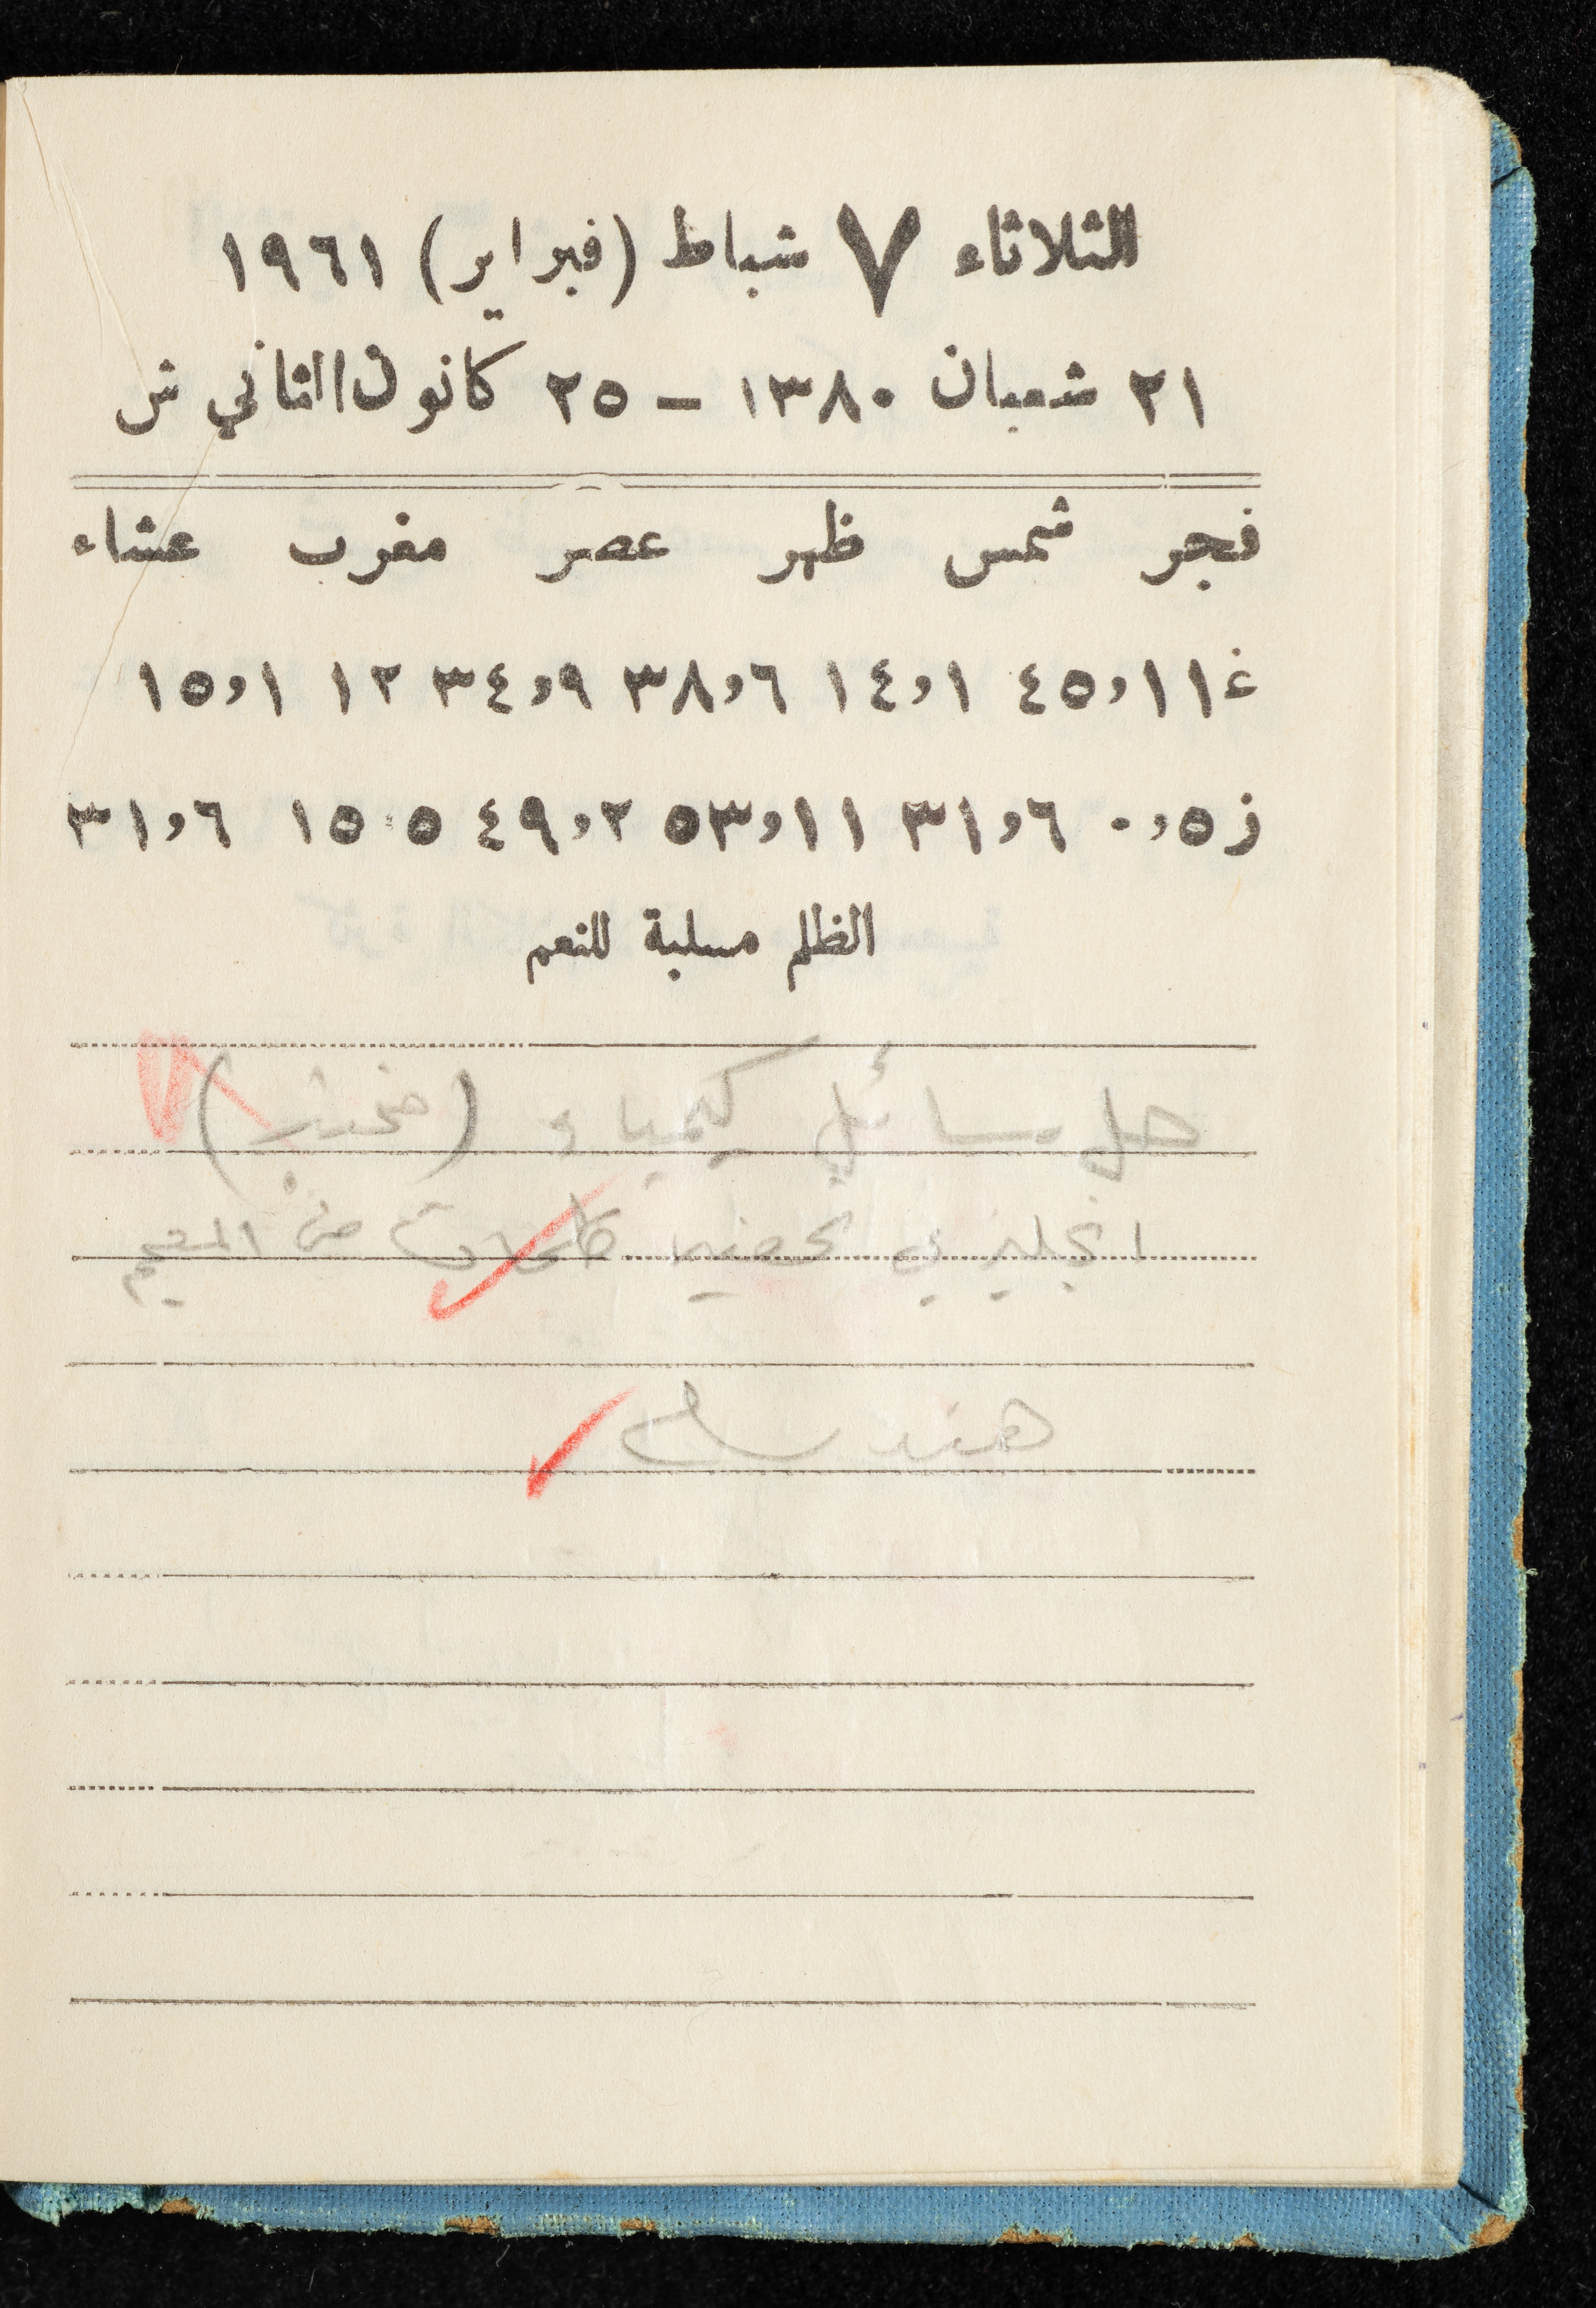 الثلاثاء ٧ شباط (فبراير) ١٩٦١
٢١ شعبان ١٣٨٠ – ٢٥ كانون الثاني ش
فجر شمس ظهر عصر مغرب عشاء
غ ١١،٤٥ ١،١٤ ٦،٣٨ ٩،٣٤ ١٢ ١،١٥
ز ٥،٠ ٦،٣١ ١١،٥٣ ٢،٤٩ ٥،١٥ ٦،٣١
الظلم مسلبة للنعم
حل مسائل كيمياء ( )
انجليزي تحضير كلمات من المعجم
هندسة